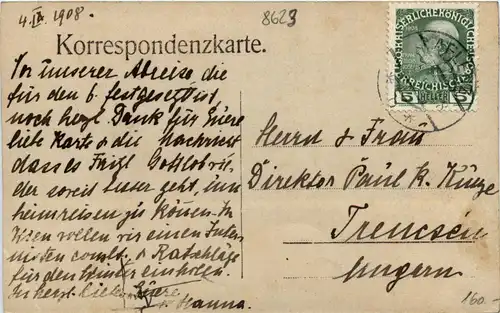 4.IX.1908.
8623
Korrespondenzkarte.
Vor unserer Abreise, die
für den 6. festgesetzt ist
noch herzl. Dank für Euere
liebe Karte & die Nachricht
dass es Fritzl Gottlob
der soweit besser geht, um
heimreisen zu können. In
Wien wollen wir einen Inter
nisten consult. & Ratschläge
für den Winter einholen.
Euere
Hanna.
KAISERLICHE KÖNIGLICHE
ÖSTERREICHISCHE
5 HELLER 5
Herrn & Frau
Direktor Paul K. Kunze
Trencsén
Ungarn
160.-